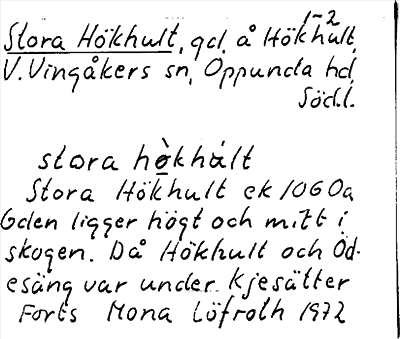 1-2
Stora Hökhult, gd. å Hökhult,
V. Vingåkers sn, Oppunda hd
Södl.
stora hö̀khált
Stora Hökhult ek 10G0a
Gden ligger högt och mitt i
skogen. Då Hökhult och Öd-
esäng var under Kjesätter
Forts Mona Löfroth 1972